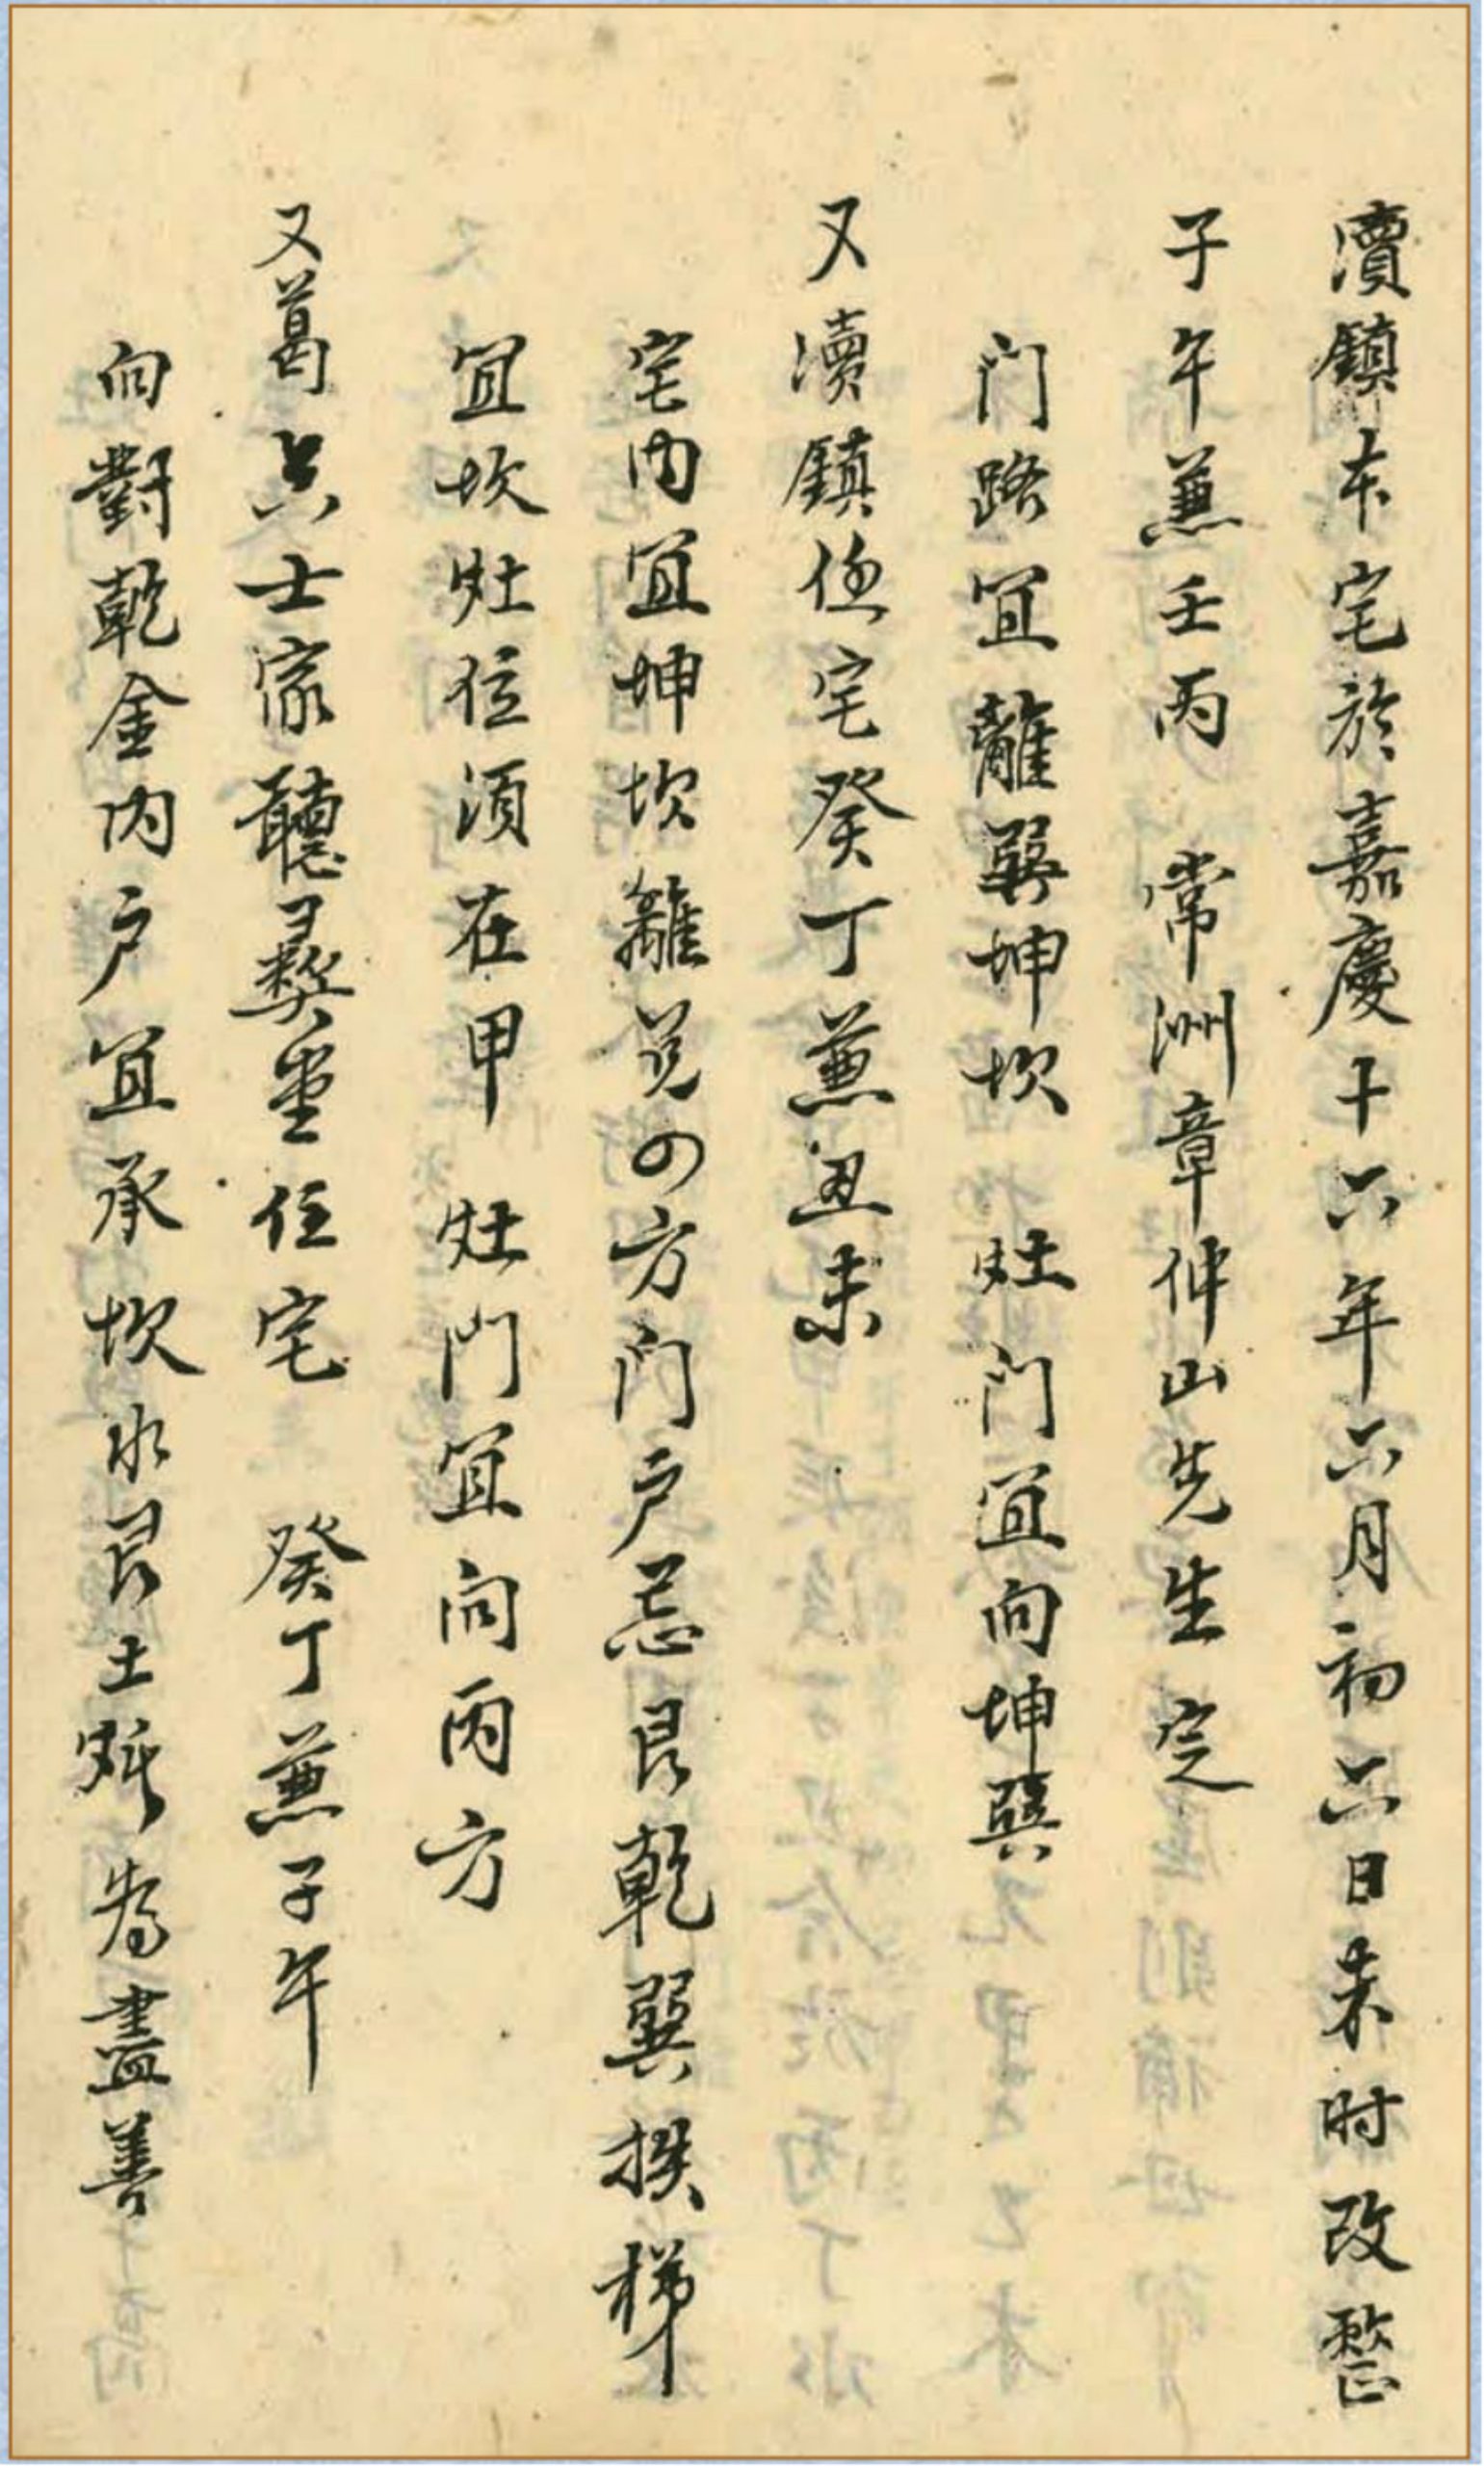 瀆鎮本宅於嘉慶十六年六月初六日未时改整
子午兼壬丙 常洲章仲山先生定
门路宜離巽坤坎 灶门宜向坤巽
又瀆鎮住宅癸丁兼丑未
宅内宜坤坎離兑四方门户忌艮乾巽 梯
宜坎灶位須在甲 灶门宜向丙方
又葛 士家聽彛堂住宅 癸丁兼子午
向對乾金内户宜承坎水艮土 為盡善